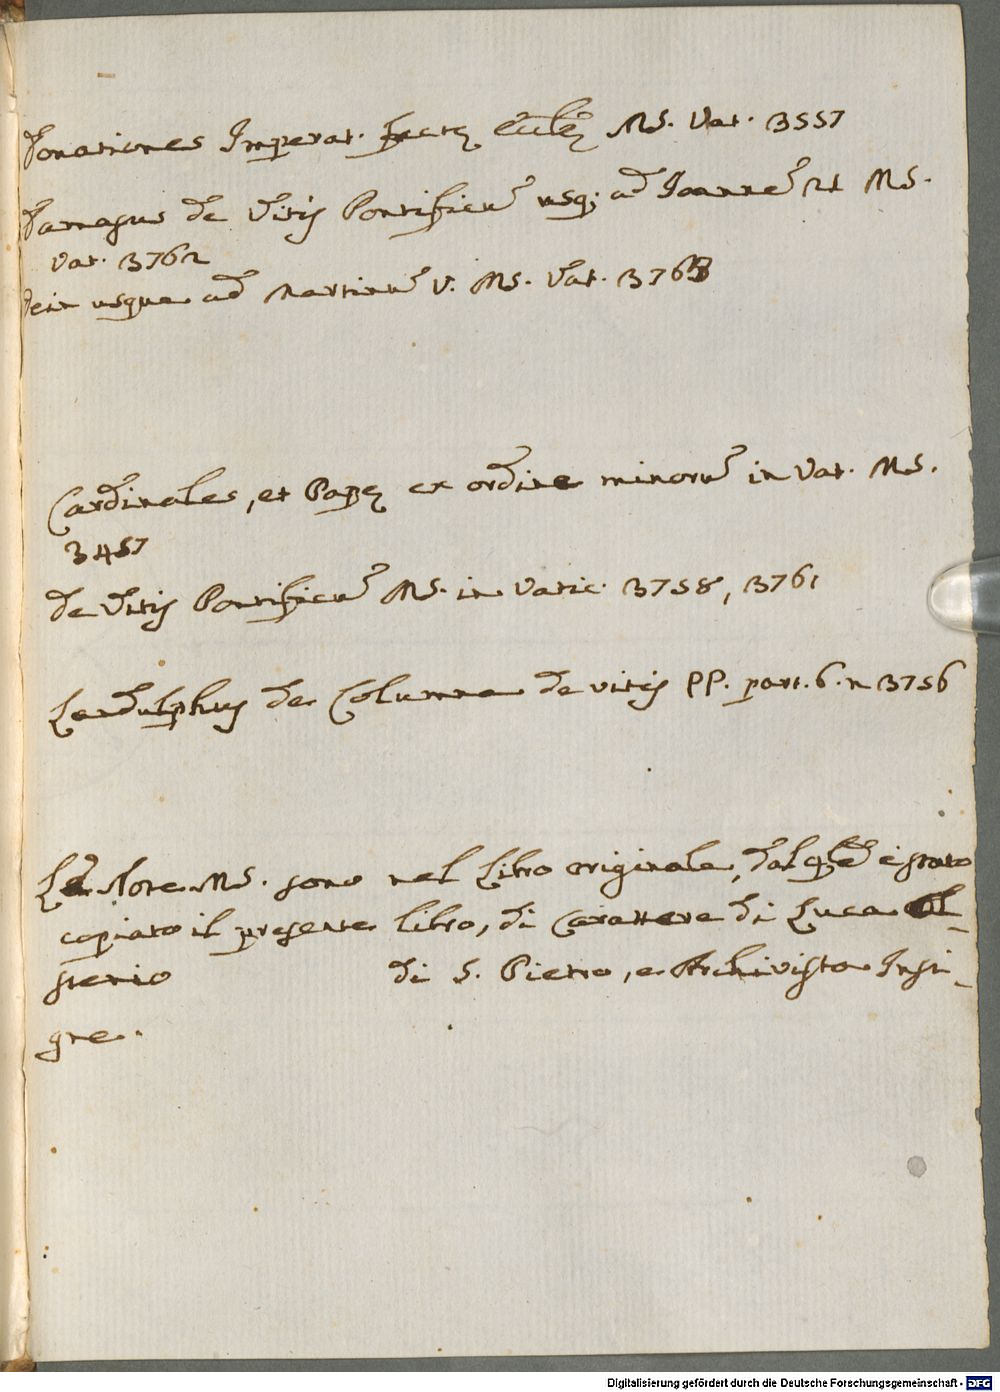 Donationes Imperat. factę Eccłę MS. Vat. 3557
Damasus de Vitis Pontificū usq; ad Joannē 21 MS.
Vat. 3762
dein usque ad Martinū V. MS. Vat. 3763
Cardinales, et Papę ex ordine minorū in Vat. MS.
3457
de Vitis Pontificū MS. in Vatic. 3758, 3761
Landulphus de Columna de vitis PP. part. 6. n 3756
Le Note MS. sono nel Libro originale, dal qle è stato
copiato il presente libro, di Carattere di Luca Ol-
stenio di S. Pietro, e Archivista Insi-
gne.
Digitalisierung gefördert durch die Deutsche Forschungsgemeinschaft - DFG